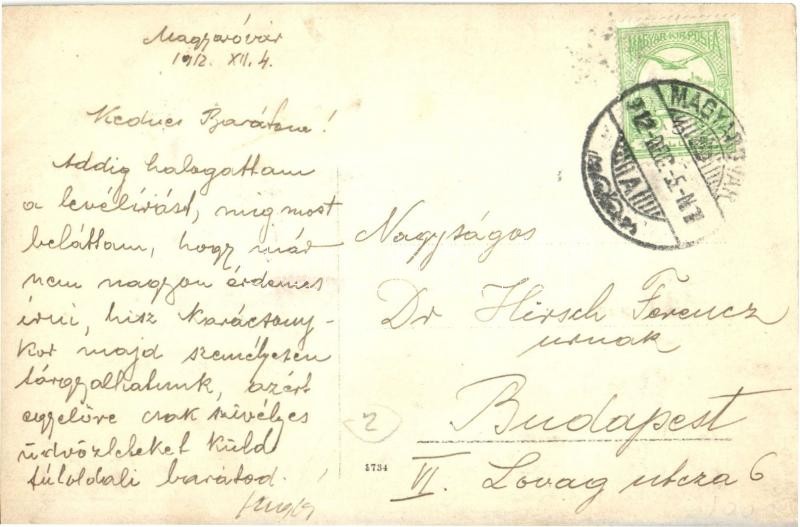 Magyaróvár
1912. XII. 4.
Kedves Barátom!
Addig halogattam
a levélírást, míg most
beláttam, hogy már
nem nagyon érdemes
írni, hisz Karácsony-
kor majd személyesen
tárgyalhatunk, azért
egyelőre csak szívélyes
üdvözleteket küld
túloldali barátod.
MAGYAR KIR. POSTA
MAGYARÓVÁR
912 DEC. 5 - N 7
A
Nagyságos
Dr Hirsch Ferencz
urnak
Budapest
VI. Lovag utcza 6
2
5734